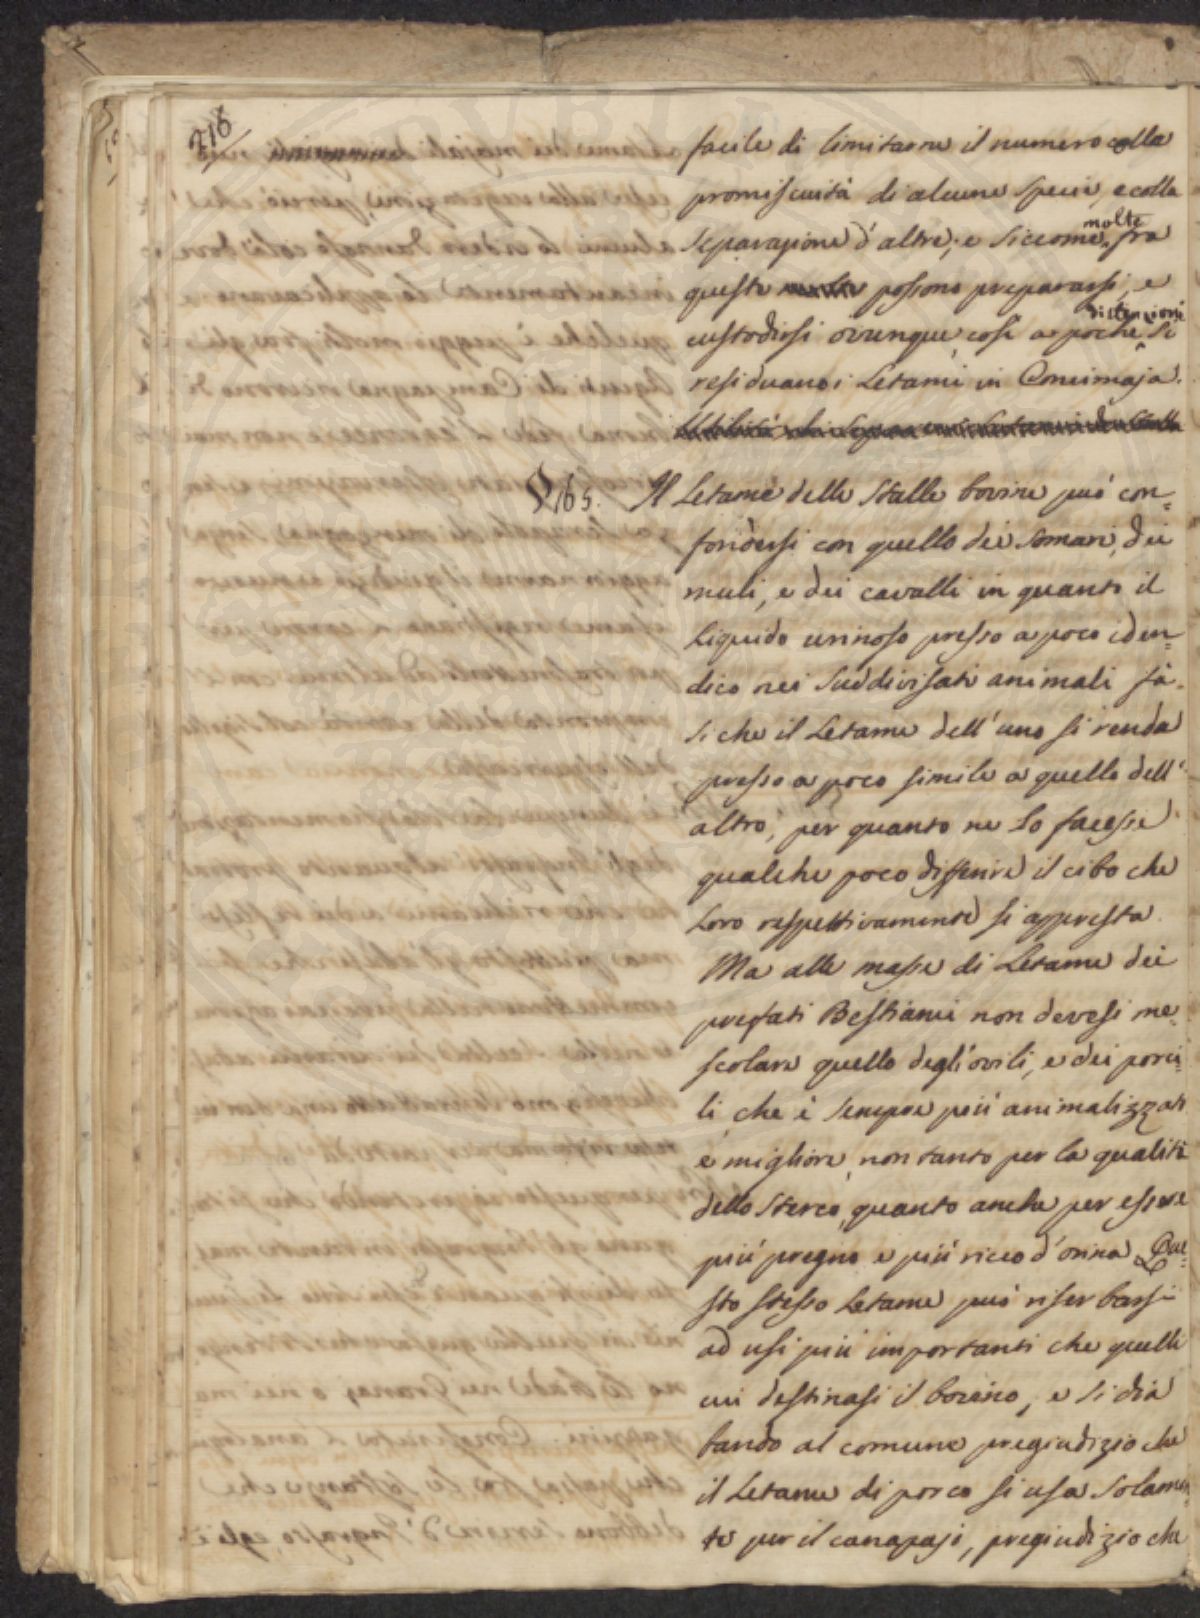 216
facile di limitarne il numero colla
promiscuità di alcune specie, e colla
separazione d'altre; e siccome molte fra
queste possono prepararsi, e
custodirsi ovunque così a poche distinzioni si
residuano i Letami in Concimaja.
§ 165. Il Letame delle Stalle bovine può con=
fondersi con quello dei Somari, dei
muli, e dei cavalli in quanto il
Liquido urinoso presso a poco iden=
dico nei suddivisati animali fà
si che il Letame dell'uno si renda
presso a poco simile a quello dell'
altro, per quanto ne lo facesse
qualche poco differire il cibo che
Loro respettivamente si appresta.
Ma alle masse di Letame dei
prefati Bestiami non devesi me=
scolare quello degl'ovili, e dei porci=
li che è sempre più animalizzato
e migliore, non tanto per la qualità
dello Sterco, quanto anche per essere
più pregno e più ricco d'orina. Que=
sto stesso Letame può riserbarsi
ad usi più importanti che quelli
cui destinasi il bovino, e si dia
bando al comune pregiudizio che
il Letame di porco si usa solamen
te per il canapaji, pregiudizio che